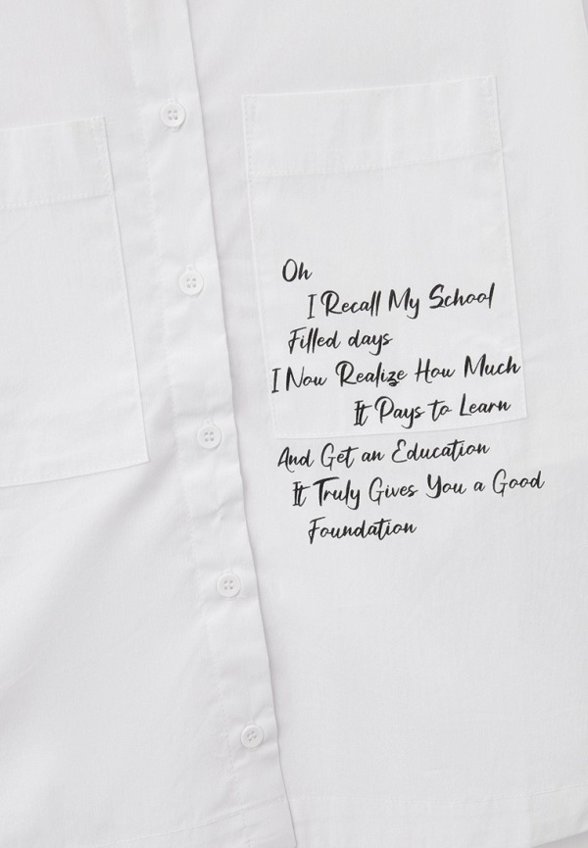 Oh
I Recall My School
Filled days
I Now Realize How Much
It Pays to Learn
And Get an Education
It Truly Gives You a Good
Foundation